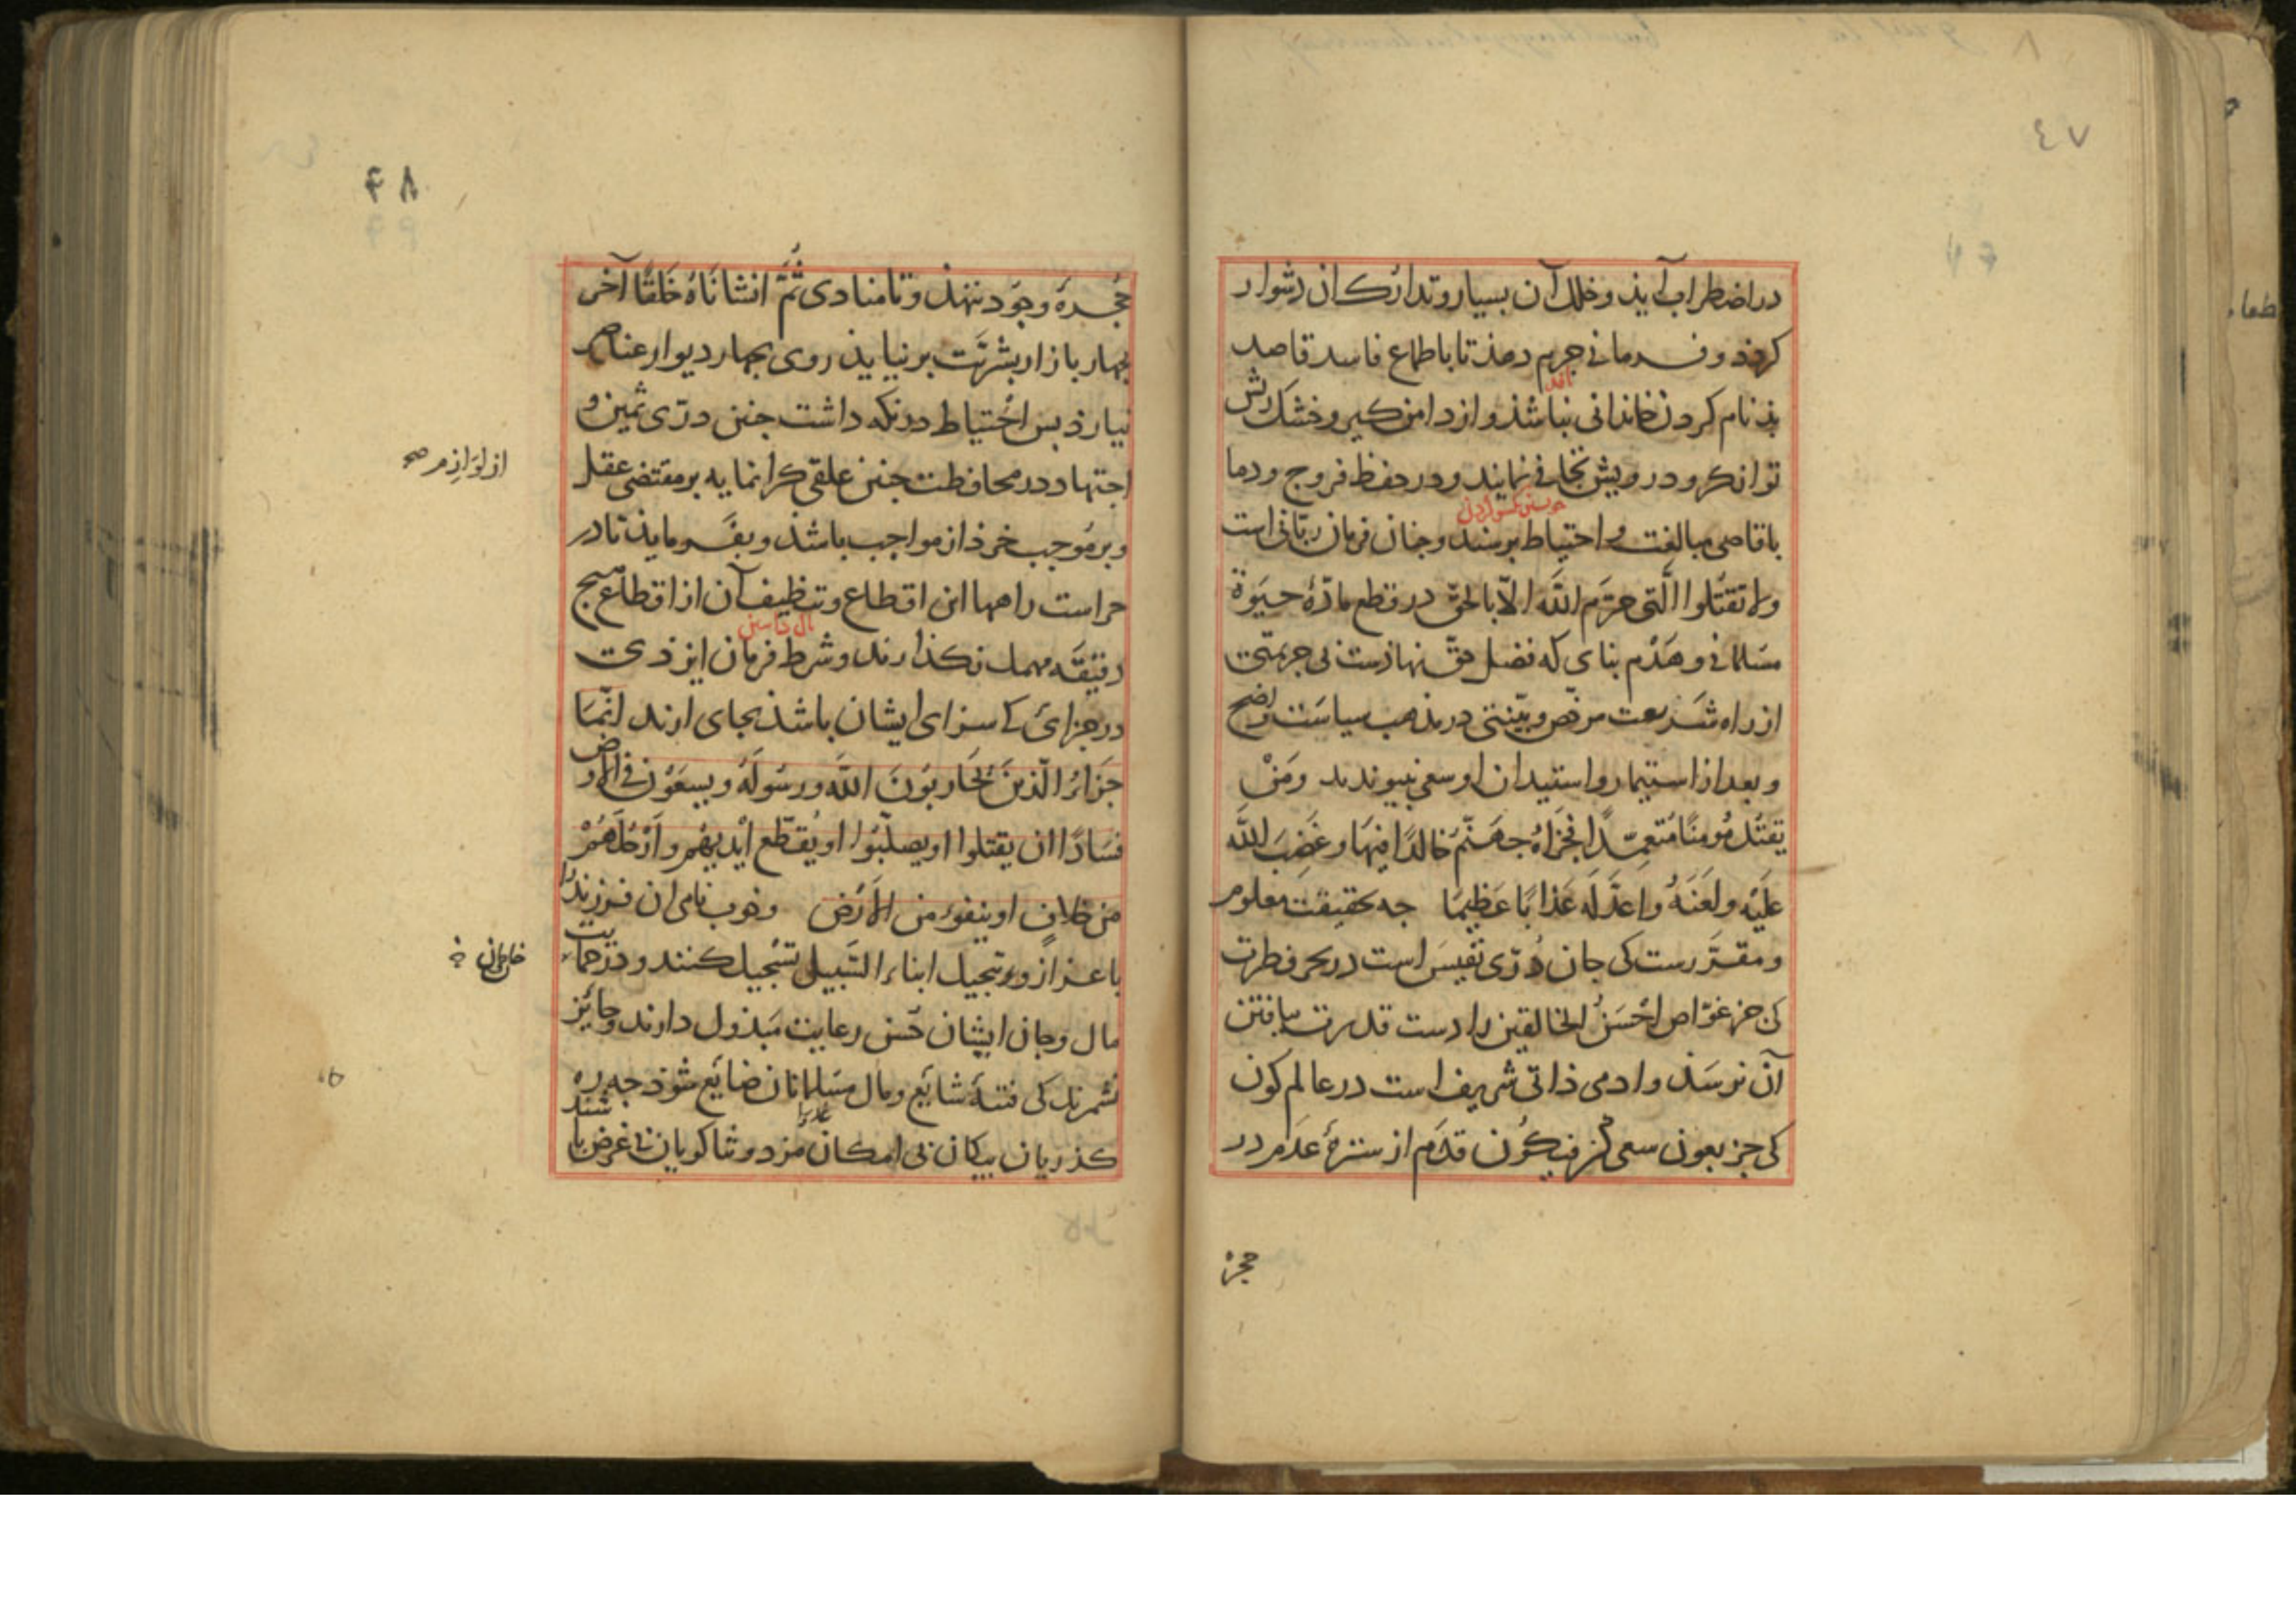 ٤٧
در اضطراب آیذ و خلل آن بسیار و تدارک آن دشوار
کردذ و فرمانی جریم دهذ تا باطماع فاسد قاصد
بذ نام کردن خاندانی نباشذ و از دامن کیر و خشک ریش
توانکر و درویش تجافی نمایند و در حفظ فروج و دما
باقاصی مبالغت و احتیاط برسند و جنان فرمان ربّانی است
ولا تقتلوا الّتی حرّم اللّه الّا بالحقّ در قطع مادّهٔ حیوة
مسلمانی و هدم بنای که فضل حقّ نهاذست بی جریمتی
از راه شریعت مرخّص و بیّنتی در مذهب سیاست واضح
و بعد از استیمار و استیدان او سعی نپیوندند ومن
یقتل مؤمنًا متعمّدًا فجزاؤه جهنّم خالدًا فیها و غضب اللّه
علیه و لعنه و اعدّ له عذابًا عظیمًا جه حقیقت معلوم
و مقرّرست کی جان درّی نفیس است در بحر فطرت
کی جز غوّاص احسن الخالقین را دست قدرت بیافتن
آن نرسذ و ادمی ذاتی شریف است در عالم کون
کی جز بعون سعی کن فیکون قدم از سترهٔ عدم در
حجر
٤٨
حجرهٔ وجود ننهذ و تا منادی ثمّ انشاناه خلقًا آخر
بجهار بازار بشریّت برنیایذ روی بجهار دیوار عناصر
نیارذ بس احتیاط در نکه داشت جنین درّی ثمین و
اجتهاد در محافظت جنین علقی کرانمایه بر مقتضی عقل
از لوازم صح
و بر موجب خرذ از مواجب باشذ و بفرمایذ تا در
حراست راهها این اقطاع و تنظیف آن از اقطاع هیچ
دقیقه مهمل نکذارند و شرط فرمان ایزدی
در جزائ کی سزای ایشان باشذ بجای ارند انّما
جزاؤ الّذین یحاربون اللّه و رسوله و یسعون فی الارض
فسادًا ان یقتلوا او یصلّبوا او یقطّع ایدیهم و ارجلهم
من خلاف او ینفوا من الارض و خوب نامی ان فرزند را
باعزاز و تبجیل ابناء السّبیل تسجیل کنند و در حمایت
مال و جان ایشان حسن رعایت مبذول دارند و جائز
نشمرند کی فتنهٔ شایع و مال مسلمانان ضایع شوذ جه ره
کذریان بیکان بی امکان مزد و ثناکویان بی غرض با